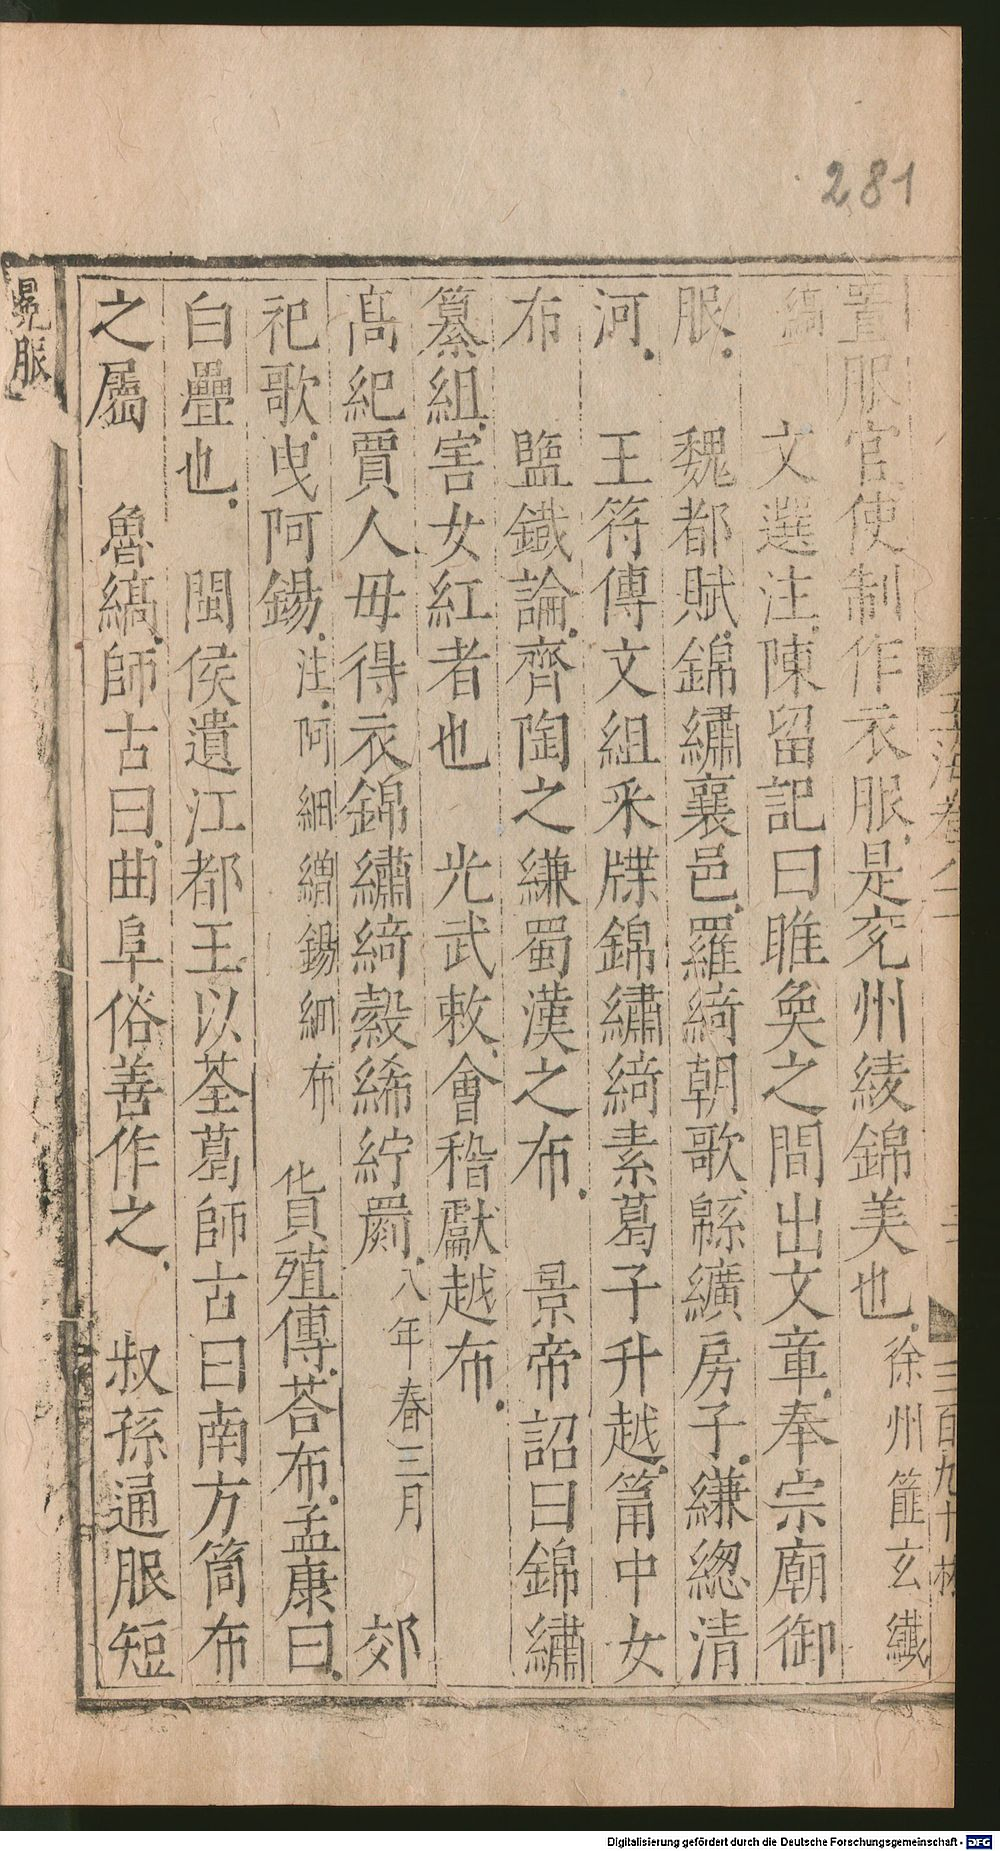 281
置服官使制作衣服是兖州綾錦美也徐州篚玄纖
縞　文選注陳留記曰睢奐之間出文章奉宗廟御
服　魏都賦錦繡襄邑羅綺朝歌緜纊房子縑緫清
河　王符傳文組采牒錦繡綺素葛子升越筩中女
布　鹽鐵論齊陶之縑蜀漢之布　景帝詔曰錦繡
纂組害女紅者也　光武敕會稽獻越布
髙紀賈人毋得衣錦繡綺縠絺紵罽八年春三月　郊
祀歌曳阿錫注阿細繒錫細布　貨殖傳荅布孟康曰
白疊也　閩侯遺江都王以荃葛師古曰南方筒布
之屬　魯縞師古曰曲阜俗善作之　叔孫通服短
冕服
三百九十
Digitalisierung gefördert durch die Deutsche Forschungsgemeinschaft - DFG